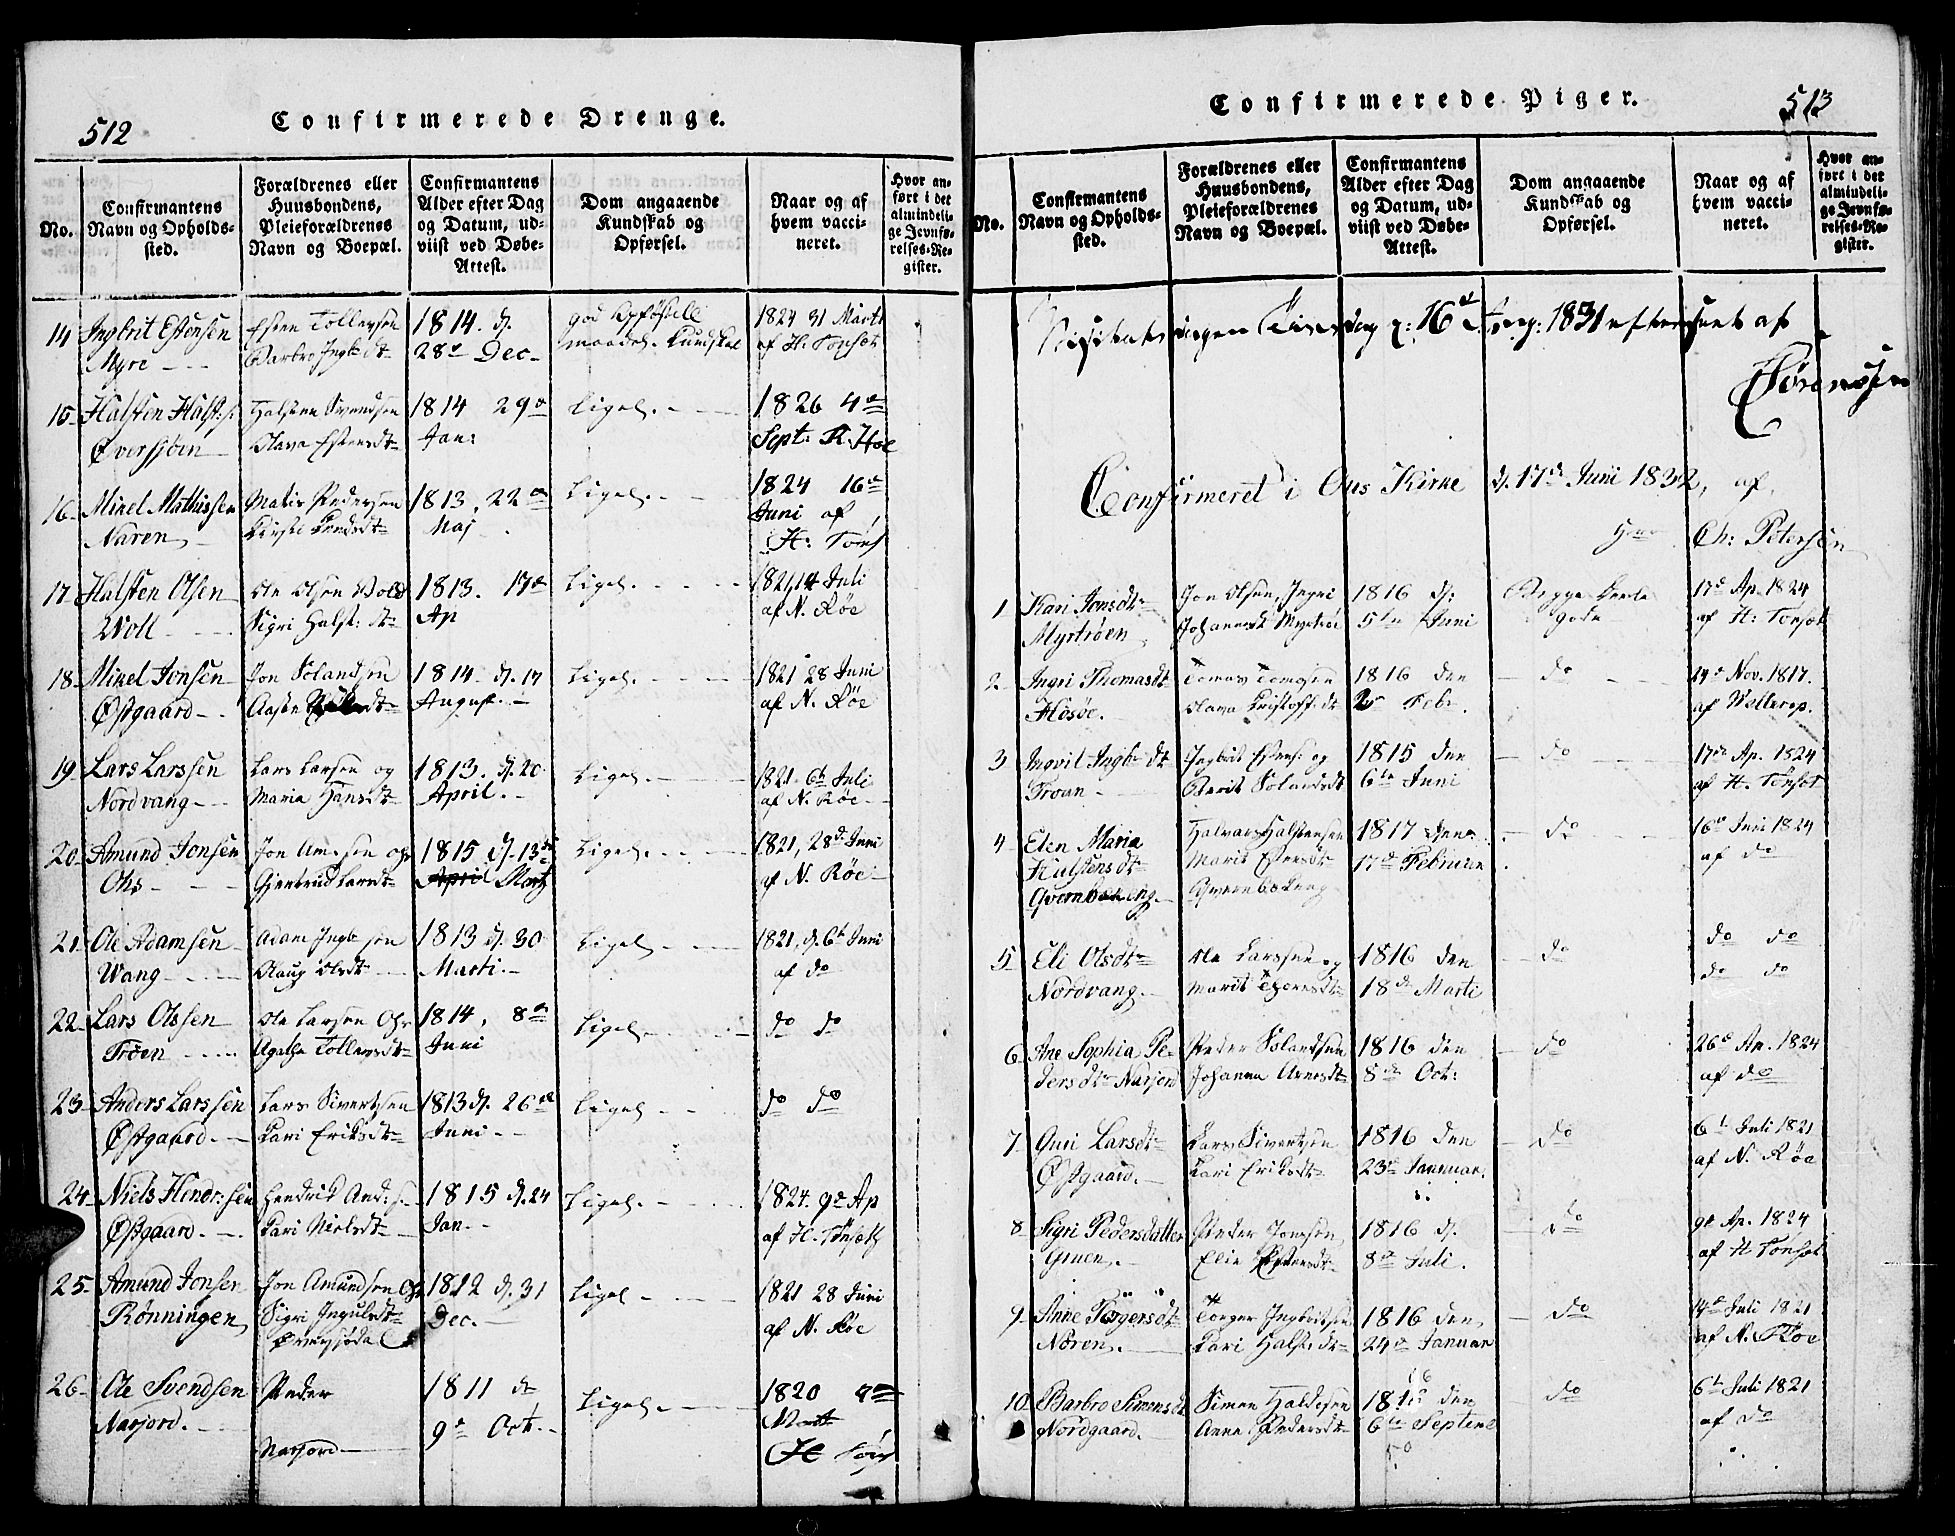 512
Confirmerede Drenge.
No.
Confirmantens
Navn og Opholds-
sted.
Forældrenes eller
Huusbondens,
Pleieforældrenes
Navn og Boepæl.
Confirmantens
Alder efter Dag
og Datum, ud-
viist ved Døbe-
Attest.
Dom angaaende
Kundskab og
Opførsel.
Naar og af
hvem vacci-
neret.
Hvor an-
ført i det
almindeli-
ge Jevnfø-
relses-Re-
gister.
14 Ingbrit Estensen
Myre
Esten Tollevsen
Barbro Ingb. dt
1814. d.
28de Dec
1824 31 Marts
af H. Tonset
15 Halsten Halst:s.
Øversjøen
Halsten Svendsen
Olava Estensdt
1814 29de
Jan:
Ligel.
1826 4de
Sept: R. Hoe
16 Mikel Mathissen
Naren
Matis Pedersen
1813, 22de
Maj
Ligel.
1824 16de
Juni af
H: Tons
17 Halsten Olsen
Woll
Ole Olsen Vold
Sigri Halst: dt
1813. 17de
Ap
Ligel.
1821, 14 Juli
af N. Røe
18 Mikel Jonsen
Østgaard
Jon Tolandsen
Aaste
1814. d. 17
August.
Ligel.
1821 28 Juni
af N. Røe
19 Lars Larssen
Nordvang
Lars Larsen og
Maria Hansdt
1813. d. 20
April.
Ligel.
1821. 6te Juli
af N. Røe
20 Amund Jonsen
Ohs
Jon Am:sen Ohs
Gjertrud Larsdt
1815 d. 13de
April Martz
Ligel.
1821, 28de Juni
af N. Røe
21 Ole Adamsen
Wang
Adam Ingb:sen
Olaug Olsdt
1813 d. 30
Marti.
Ligel.
1821, d. 6te Juni
af do
22 Lars Olssen
Trøen
Ole Larsen Ohs
Agathe Tollevsdt
1814, 8de
Juni
Ligel.
do do
23 Anders Larssen
Østgaard.
Lars Sivertsen
Kari Eriksdt
1813 d. 26de
Juni.
Ligel.
do do
24 Niels Hendr:sen
Østgaard.
Hendrik And:s.
Kari Nielsdt
1815 d. 24
Jan.
Ligel.
1824. 9de Ap
af H. Tonseth
25 Amund Jonsen
Rønningen
Jon Amundsen Ohs
Sigri Ingulsdt
1812 d. 31
Dec.
Ligel
1821 28 Juni
af N. Røe
26 Ole Svendsen
Narjord.
Peder
Narjord
1811 d
9de Oct.
Ligel.
1820
H Tons
513
Confirmerede Piger.
No.
Confirmantens
Navn og Opholds-
sted.
Forældrenes eller
Huusbondens,
Pleieforældrenes
Navn og Boepæl.
Confirmantens
Alder efter Dag
og Datum, ud-
viist ved Døbe-
Attest.
Dom angaaende
Kundskab og
Opførsel.
Naar og af
hvem vacci-
neret.
Hvor an-
ført i det
almindeli-
ge Jevnfø-
relses-Re-
gister.
16de Aug: 1831 efterseet af
Sørenssen
Confirmeret i Ous Kirke d. 17de Juni 1832, af
Herr Ch: Petersen
1 Kari Jonsdt
Myrtrøen
Jon Olsen, Ingri
Johannesdt Myrtrøe
1816 d:
5te Juni
Begge Deele
gode
17de Ap. 1824
af H: Tonset
2 Ingri Thomasdt
Hosøe.
Tomas Tomesen
Olava Kristoff:dt
1816 den
Febr.
do
14de Nov. 1817.
af Wellerop.
3 Ingvil Ingb. dt
Troan
Ingbrit Estens: og
Berit Tolandsdt
1815 den
6te Juni
do
17de Ap. 1824
af H. Tonset
4 Elen Maria
Halstensdt
Halvar Halstensen
Marit Estensdt
1817 den
17de Februar
do
16de Juni 1824
af do
5 Eli Olsdt
Nordvang.
Ole Larssen og
Marit Thoresdt
1816 den
18de Marti
do
do do
do do
6 Ane Sophia Pe-
dersdt Narjord
Peder Tolandsen
Johanna Arnesdt
1816 den
8de Oct:
do
26de Ap. 1824
af do
7 Guri Larsdt
Østgaard.
Lars Sivertsen
Kari Eriksdt
1816 den
23de Januar.
do
6te Juli 1821
af N. Røe
8 Sigri Pedersdatter
Gruen.
Peder Jonsen
Elie Estensdt
1816 d.
8de Juli.
do
9de Ap. 1824
af H Tonset
9 Anne Torgersdt
Noren.
Torger Ingbritsen
Kari Halst:dt
1816 den
24de Januar
do
14de Juli 1821
af N. Røe
10 Barbro Simensdt
Nordgaard.
Simen Haldosen
Anne Pedersdt
16
1815 den
6te Septene
do
6te Juli 1821
af do